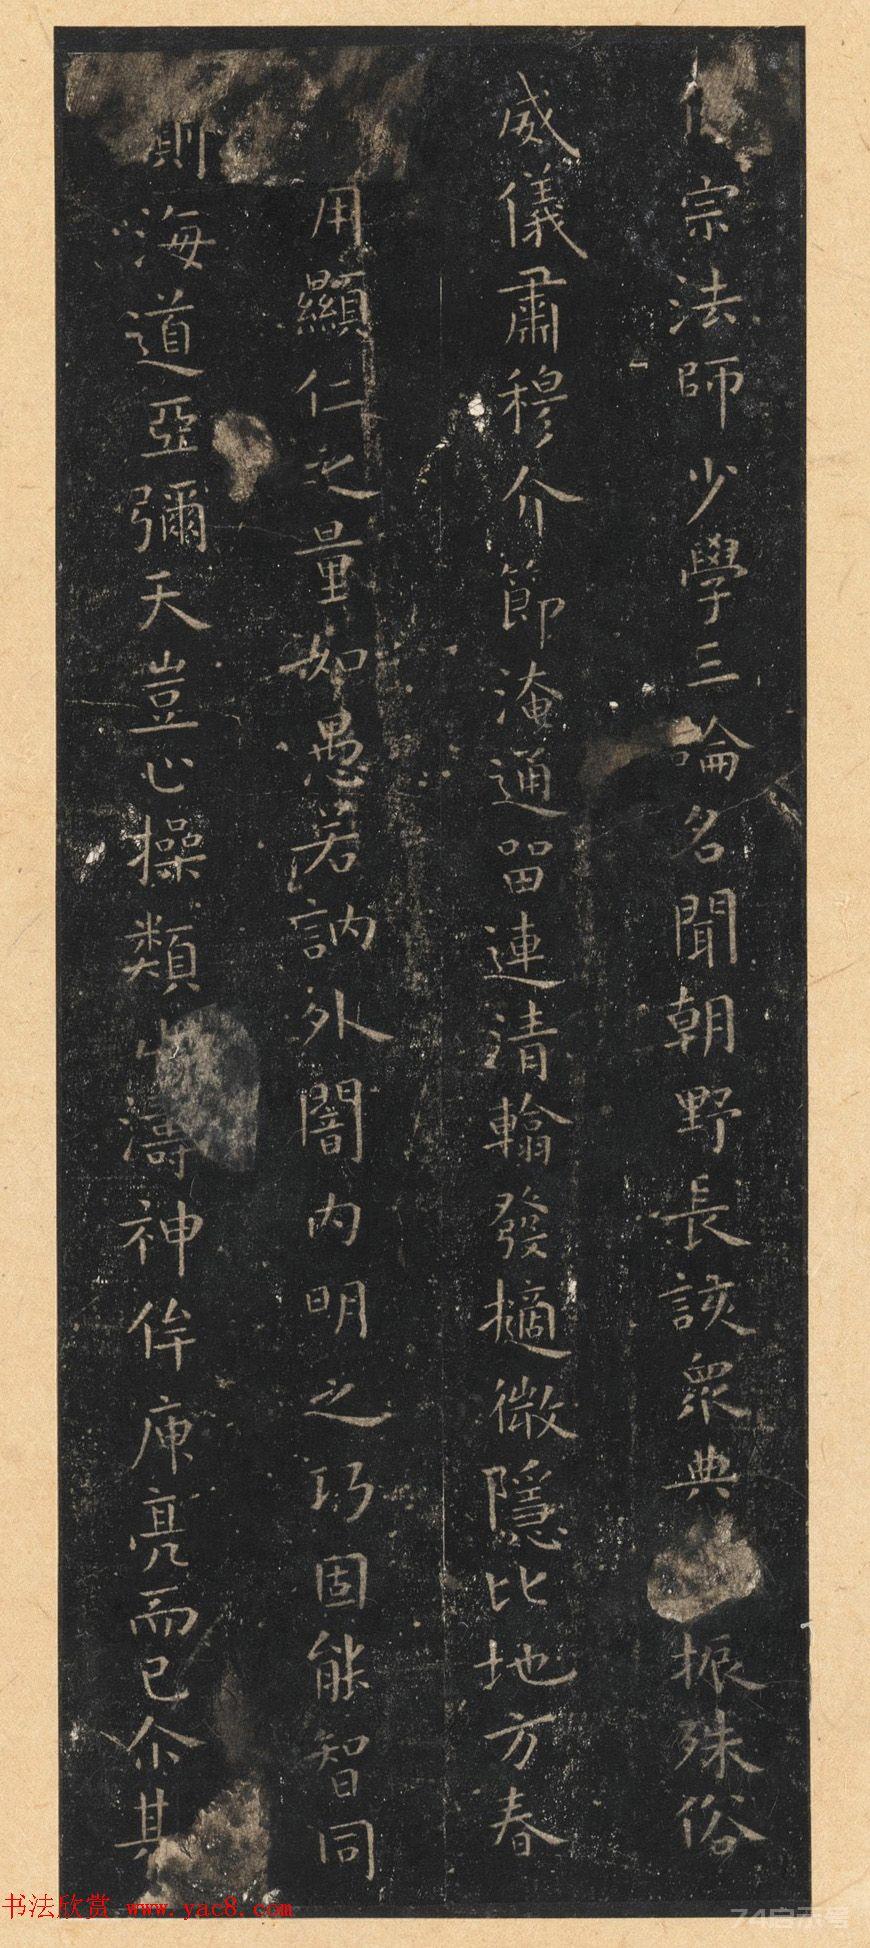 宗法師少學三論名聞朝野長該眾典振殊俗
威儀肅穆介節淹通留連清翰發擿微隱比地方春
用顯仁之量如愚若訥外闇內明之巧固能智同
則海道亞彌天豈心操類濤神侔庾亮而已介其
书法欣赏 www.yac8.com